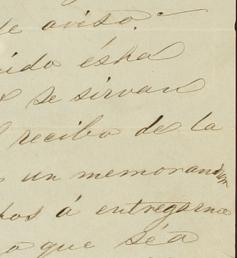 de aviso.
ésta
se sirvan
recibo de la
un memorandum
á entregarme
que séa